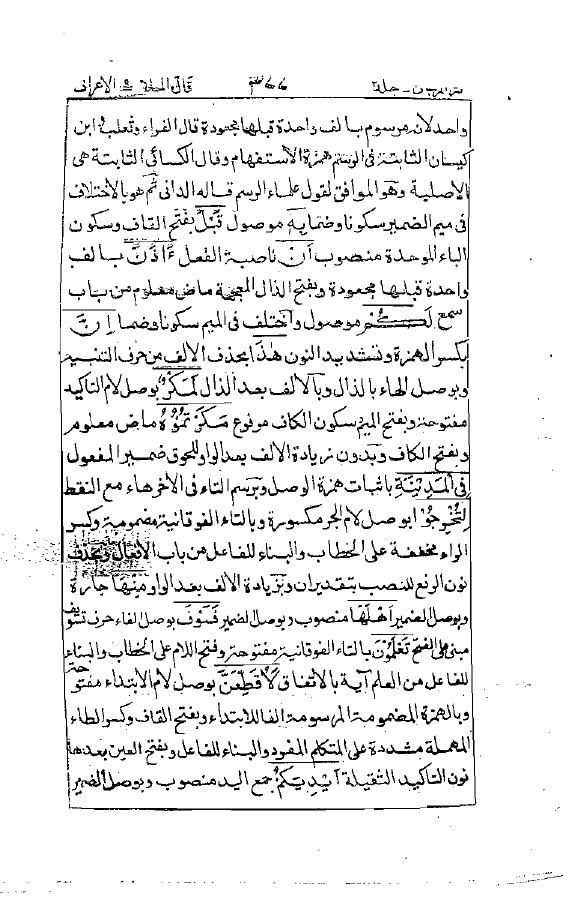 قال الملا ٩ الاعراف
واحد لانه مرسوم بالف واحدة قبلها مجعودة قال الفراء وثعلب وابن
كيسان الثابتة في الرسم همزة الاستفهام وقال الكسائى الثابتة هى
الاصلية وهو الموافق لقول علماء الرسم قاله الدانى ثم هو بالاختلاف
في ميم الضمير سكونا وضما به موصول قَبْلَ بفتح القاف وسكون
الباء الموحدة منصوب اَنْ ناصبة الفعل ءَاذَنَ بالف
واحدة قبلها مجعودة وبفتح الذال المعجمة ماض معلوم من باب
سمع لَكُمْ موصول واختلف في الميم سكونا وضما اِنَّ
بكسر الهمزة وتشديد النون هٰذَا بحذف الالف من حرف التنبيه
وبوصل الهاء بالذال وبالالف بعد الذال لَمَكْرٌ بوصل لام التاكيد
مفتوحة وبفتح الميم سكون الكاف مرفوع مَكَرْتُمُوْهُ ماض معلوم
وبفتح الكاف وبدون زيادة الالف بعد الواو للحوق ضمير المفعول
فِى الْمَدِيْنَةِ باثبات همزة الوصل وبرسم التاء فى الآخر هاء مع النقط
لِتُخْرِجُوْا بوصل لام الجر مكسورة وبالتاء الفوقانية مضمومة وكسر
الراء مخففة على الخطاب والبناء للفاعل من باب الافعال وبحذف
نون الرفع للنصب بتقدير ان وبزيادة الالف بعد الواو مِنْهَا جارة
وبوصل الضمير اَهْلَهَا منصوب وبوصل الضمير فَسَوْفَ بوصل الفاء حرف تسويف
مبنى على الفتح تَعْلَمُوْنَ بالتاء الفوقانية مفتوحة وفتح اللام على الخطاب والبناء
للفاعل من العلم آية بالاتفاق لَاُقَطِّعَنَّ بوصل لام الابتداء مفتوحة
وبالهمزة المضمومة المرسومة الفا للابتداء وبفتح القاف وكسر الطاء
المهملة مشددة على المتكلم المفرد والبناء للفاعل وبفتح العين بعدها
نون التاكيد الثقيلة اَيْدِيَكُمْ جمع اليد منصوب وبوصل الضمير